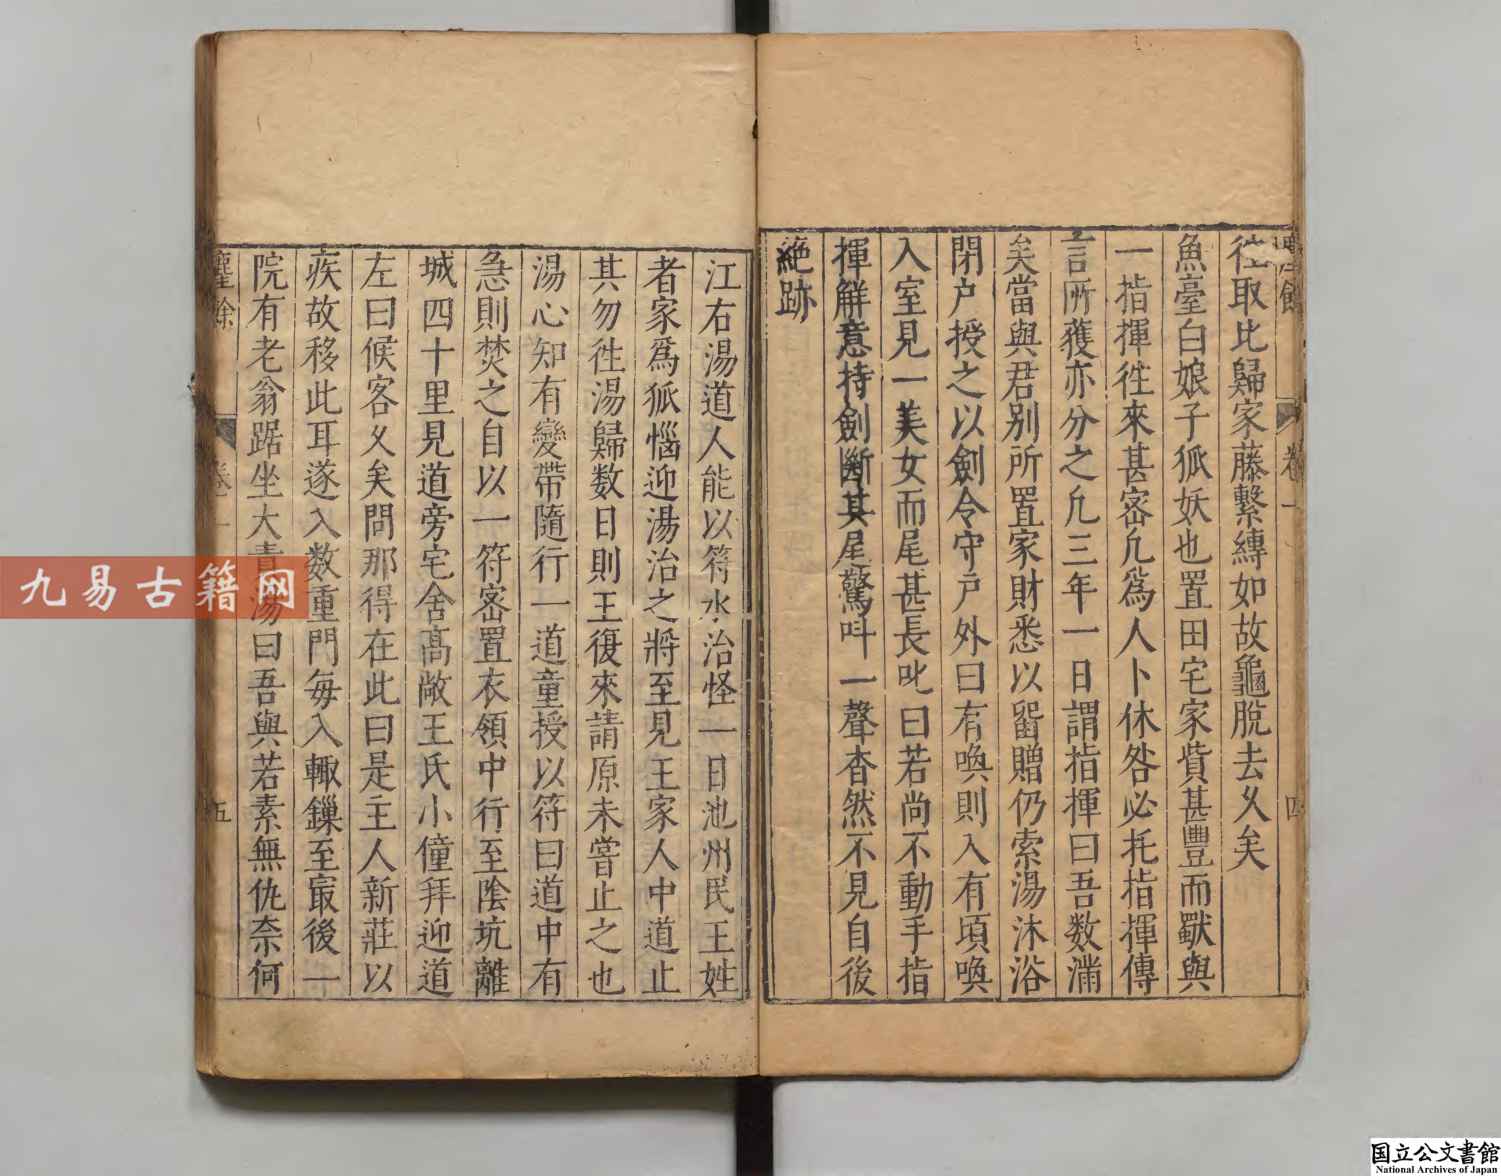 徃取比歸家藤繫縳如故龜脫去久矣
魚臺白娘子狐妖也置田宅家貲甚豐而獸與
一指揮徃來甚密凢爲人卜休咎必托指揮傳
言所獲亦分之凢三年一日謂指揮曰吾数滿
矣當與君别所置家財悉以留贈仍索湯沐浴
閉户授之以劍令守戸戸外曰有喚則入有頃喚
入室見一美女而尾甚長叱曰若尚不動手指
揮解意持劍斷其尾驚呌一聲杳然不見自後
絶跡
卷一
四
江右湯道人能以符水治怪一日池州民王姓
者家爲狐惱迎湯治之將至見王家人中道止
其勿徃湯歸数日則王復來請原未嘗止之也
湯心知有變帶隨行一道童授以符曰道中有
急則焚之自以一符密置衣領中行至陰坑離
城四十里見道旁宅舍高敞王氏小僮拜迎道
左曰候客久矣問那得在此曰是主人新莊以
疾故移此耳遂入数重門每入輙鏁至冣後一
院有老翁踞坐大責湯曰吾與若素無仇奈何
塵餘
卷一
五
九易古籍网
国立公文書館
National Archives of Japan